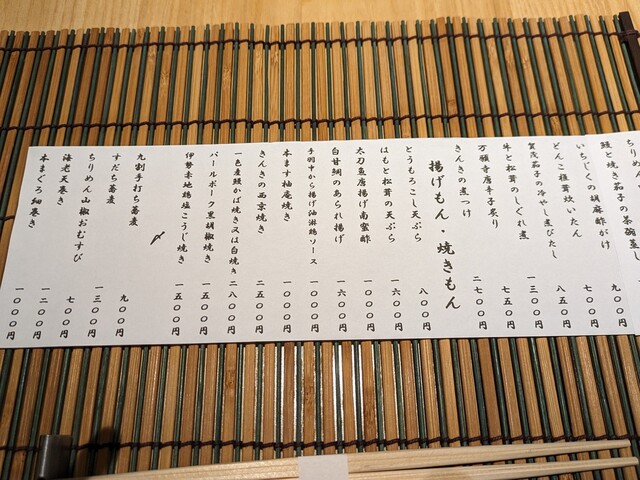 ちりめん
鰻と焼き茄子の茶碗蒸し 九〇〇円
いちじくの胡麻酢がけ 七〇〇円
どんこ椎茸炊いたん 八五〇円
賀茂茄子の冷やし煮びたし 一三〇〇円
牛と松茸のしぐれ煮 七五〇円
万願寺唐辛子炙り
きんきの煮つけ 二七〇〇円
揚げもん・焼きもん
とうもろこし天ぷら 八〇〇円
はもと松茸の天ぷら
太刀魚唐揚げ南蛮酢 一〇〇〇円
白甘鯛のあられ揚げ 一六〇〇円
手羽中から揚げ油淋鶏ソース 一〇〇〇円
本ます柚庵焼き 一〇〇〇円
きんきの西京焼き 二五〇〇円
一色産鰻かば焼き又は白焼き 二八〇〇円
バールポーク黒胡椒焼き 一五〇〇円
伊勢赤地鶏塩こうじ焼き 一五〇〇円
〆
九割手打ち蕎麦 九〇〇円
すだち蕎麦
ちりめん山椒おむすび 一三〇〇円
海老天巻き 七〇〇円
本まぐろ細巻き 一二〇〇円
一〇〇〇円